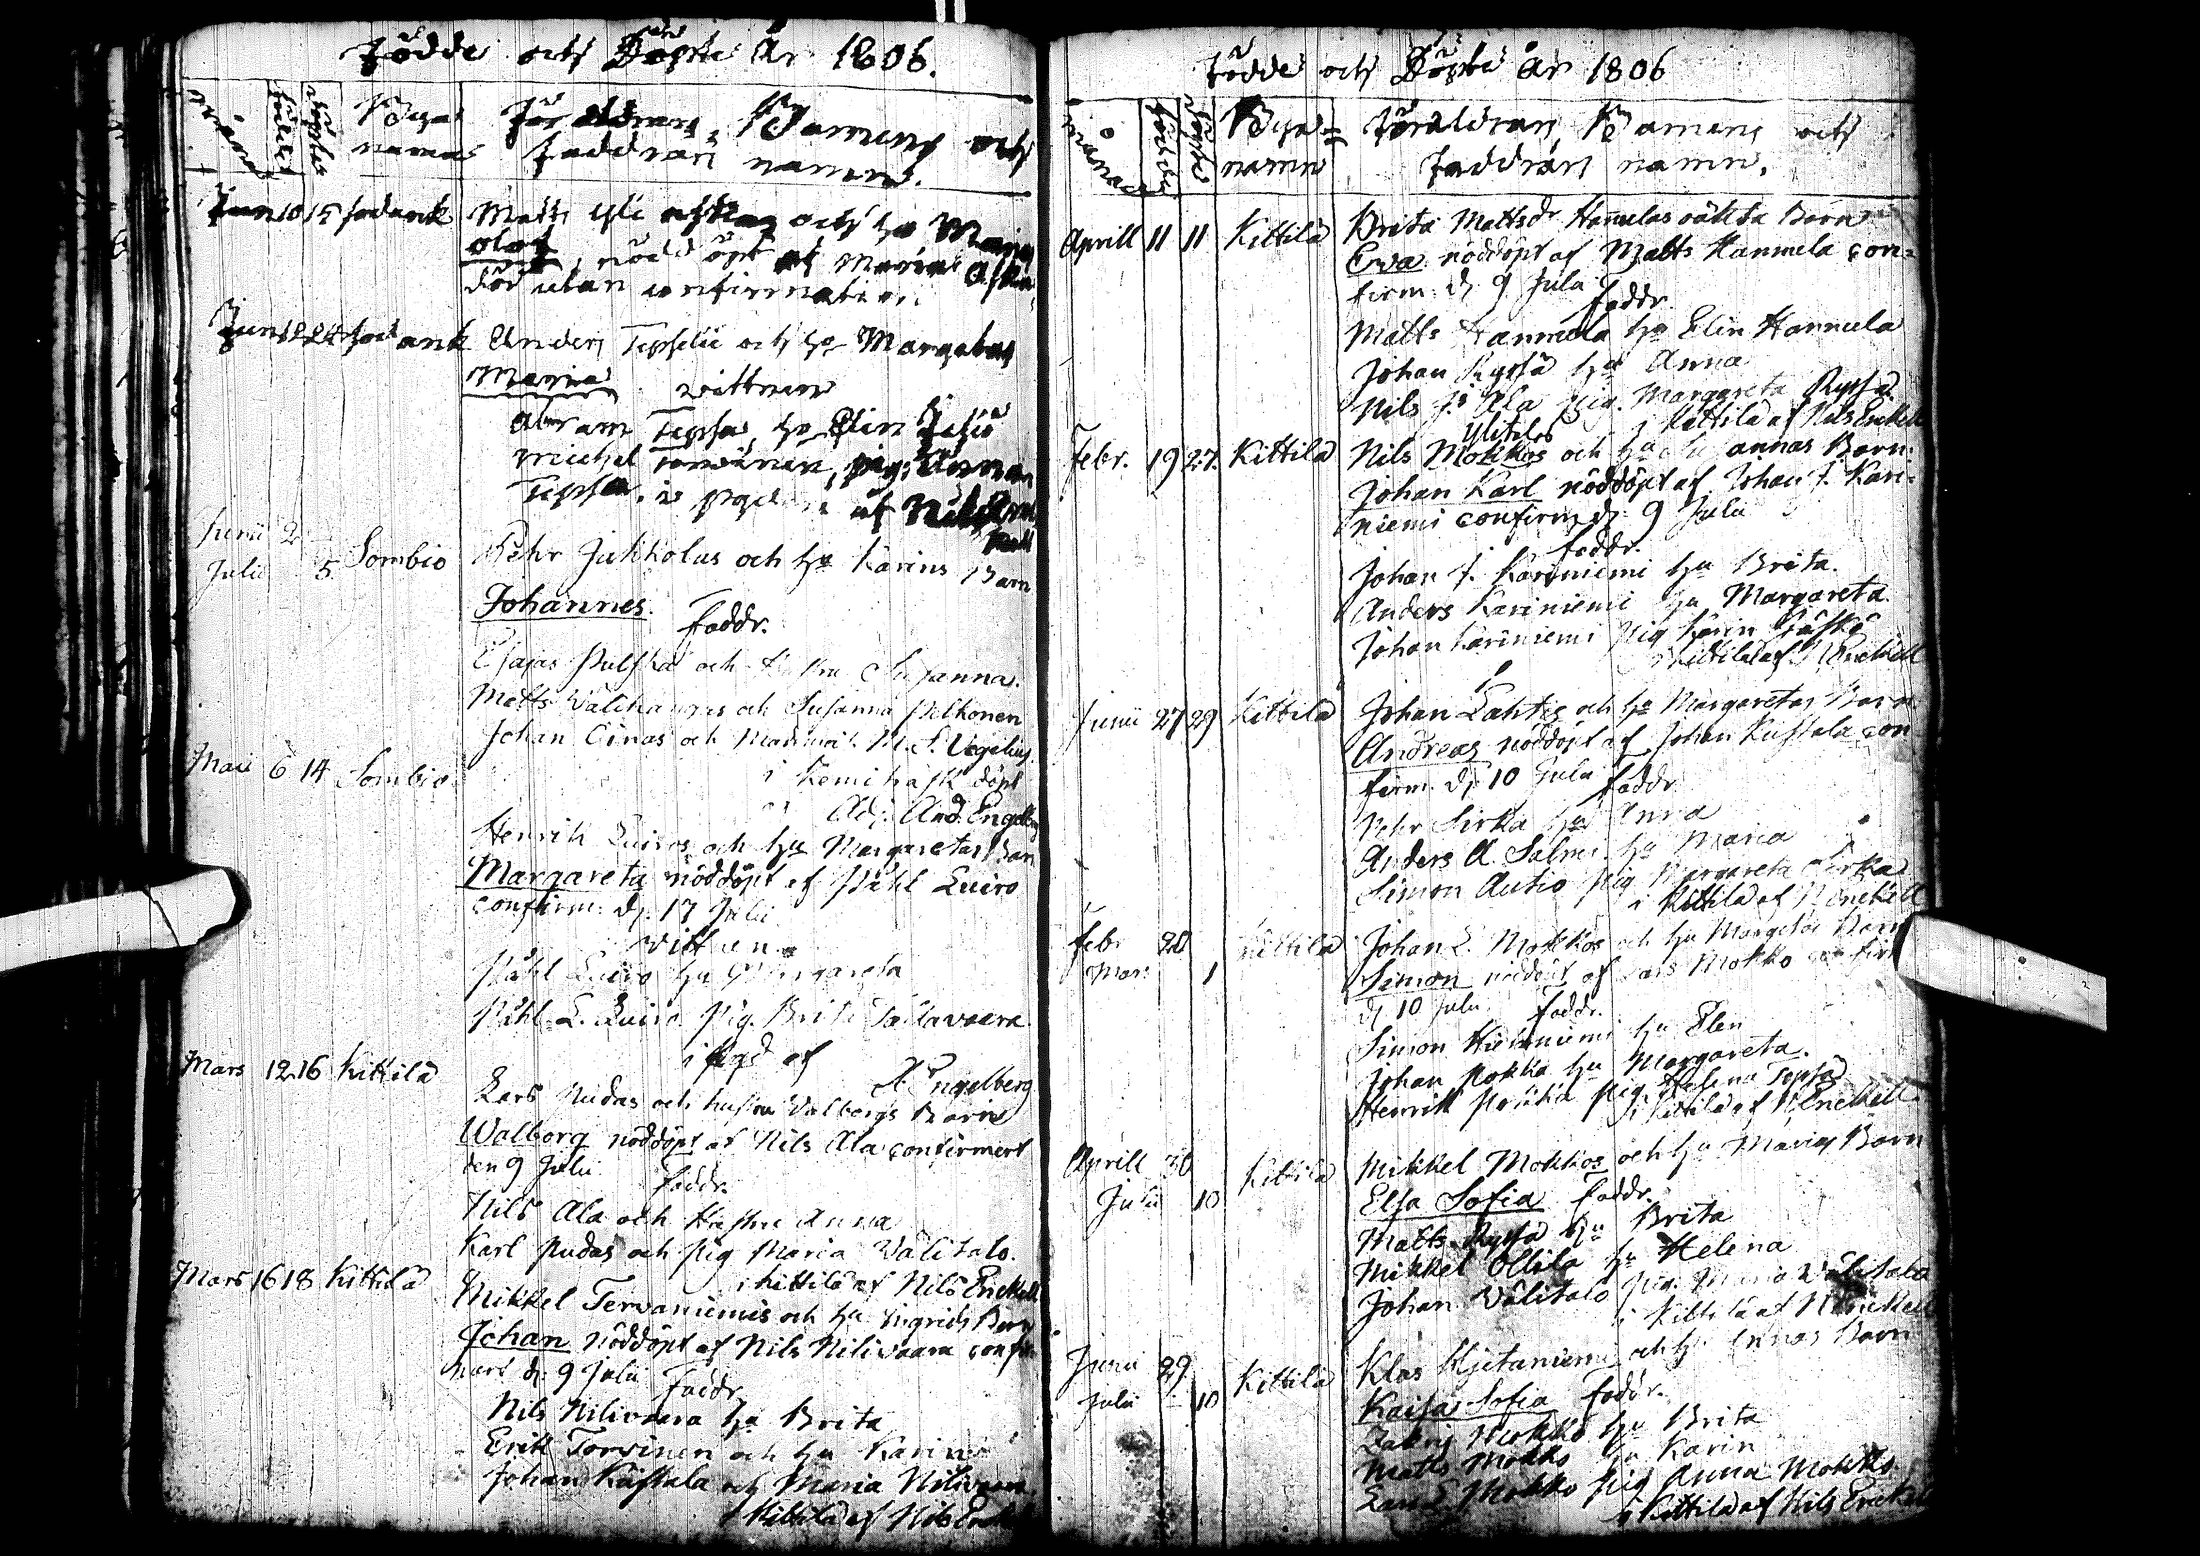 Födde och Döpte År 1806.
månad födde döpte Byanamn Föräldrars, Barnens och
Faddrars namn.
Jun 10 15 Sodank Matts och hu Maria
Olof, nöddöpt af
död utan confirmation
Jun 12 24 Sodank Anders och hu Margetas
Maria vittnen
Abram hu Elin
Michel pig: Anna
af
Junii 2
Julii 5 Sombio Pehr Jukkolas och hu Karins Barn
Johannes. Faddr.
Esajas och Susanna.
Matts och Susanna Pelkonen
Johan och M. S. Vegelius
i Kemihask döpt
Adj. And. Engelberg
Maii 6 14 Sombio
Henrik Luiros och hu Margaretas Barn
Margareta nöddöpt af Påhl Luiro
confirm: d: 17 Julii
vittnen
Påhl Luiro hu Margareta
Påhl L. Luiro Pig. Brita
i af
A. Engelberg
Mars 12 16 Kittilä
Lars Pudas och hustru Valborgs Barn
Walborg nöddöpt af Nils Ala confirmert
den 9 Julii Faddr.
Nils Ala och Hustru Anna
Karl Pudas och Pig Maria Välitalo.
i Kittilä af Nils Enckell
Mars 16 18 Kittilä
Mikkel Tervaniemis och hu Ingrids Barn
Johan nöddöpt af Nils Nilivaara confir
mert d: 9 Julii Faddr.
Nils Nilivaara hu Brita
Erik Torvinen och hu Karin
Johan och Maria Nilivaara
i Kittilä af Nils Enckell
Födde och Döpte år 1806
månad födde döpte Byanamn Föräldrars, Barnens och
Faddrars namn.
Aprill 11 11 Kittilä Brita Mattsdr Hannulas oäkta Barn
Ewa nöddöpt af Matts Hannula con-
firm: d: 9 Julii
Faddr.
Matts Hannula hu Elin Hannula
Johan hu Anna
Nils J: Ala pig. Margareta
i Kittilä af Nils Enckell
Ylitalos
Febr. 19 27. Kittilä Nils Mokkos och hu Barn:
Johan Karl nöddöpt af Johan J. Kari-
niemi confirm d: 9 Julii
Faddr.
Johan J. Kariniemi hu Brita.
Anders Kariniemi hu Margareta
Johan Kariniemi pig Karin
i Kittilä af N Enckell
Junii 27 29 Kittilä Johan Lahtis och hu Margaretas Barn
Andreas nöddöpt af Johan con
firm. d: 10 Julii Faddr
Pehr Sirka hu Anna
Anders A. hu Maria
Simon Autio pig Margareta Sirka
i Kittilä af N Enckell
Febr 28
Mars 1 Kittilä Johan L. Mokkos och hu Margetas Barn
Simon nöddöpt af Lars Mokko confirm
d: 10 Julii Faddr.
Simon Hietaniemi hu Elen
Johan Mokka hu Margareta.
Henrik pig. Helena
i Kittilä af N Enckell
Aprill 30
Julii 10 Kittilä Mikkel Mokkos och hu Marias Barn
Elsa Sofia Faddr.
Matts hu Brita
Mikkel Ollila hu Helena
Johan Välitalo pig. Maria Välitalo
i Kittilä af N Enckell
Junii 29
Julii 10 Kittilä Klas Hjetaniemi och hu Annas Barn
Kaisa Sofia Faddr.
Mokko hu Brita
Matts Mokko hu Karin
Lars L Mokko pig Anna Mokko
i Kittilä af Nils Enckell